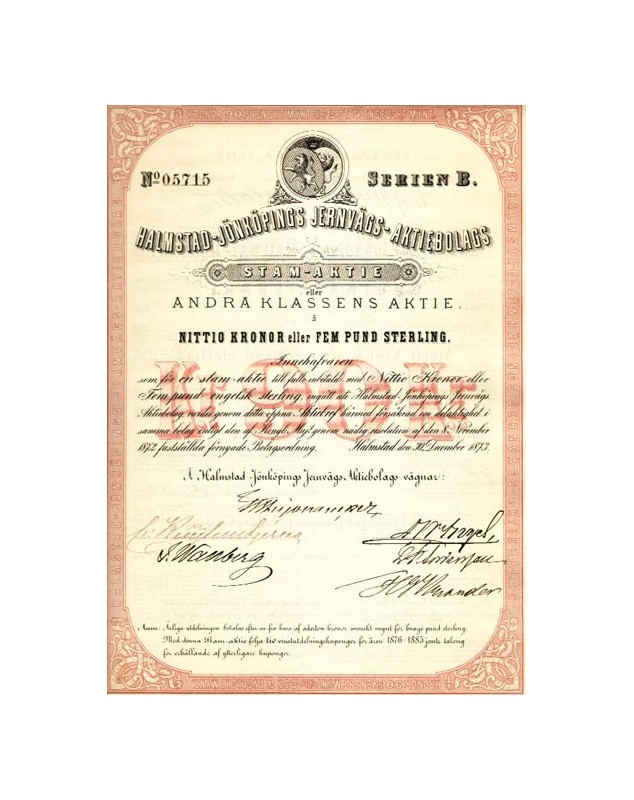 No 05715
SERIEN B.
HALMSTAD-JÖNKÖPINGS JERNVÄGS-AKTIEBOLAGS
STAM-AKTIE
eller
ANDRA KLASSENS AKTIE.
å
NITTIO KRONOR eller FEM PUND STERLING.
Innehafvaren
som för en stam-aktie till fullo inbetalt med Nittio Kronor eller
Fem pund engelsk sterling, ingått uti Halmstad-Jönköpings Jernvägs
Aktiebolag, varder genom detta öppna Aktiebref härmed försäkrad om delaktighet i
samma bolag enligt den af Kongl. Maj:t genom nådig resolution af den 8 November
1872 fastställda förnyade Bolagsordning. Halmstad den 30 December 1873.
Kr 90 Kr
Å Halmstad-Jönköpings Jernvägs Aktiebolags vägnar:
Anm: Årliga utdelningen betalas efter en fix kurs af aderton kronor svenskt mynt för hvarje pund sterling.
Med denna Stam-aktie följa tio vinstutdelningskuponger för åren 1876-1885 jemte talong
för erhållande af ytterligare kuponger.